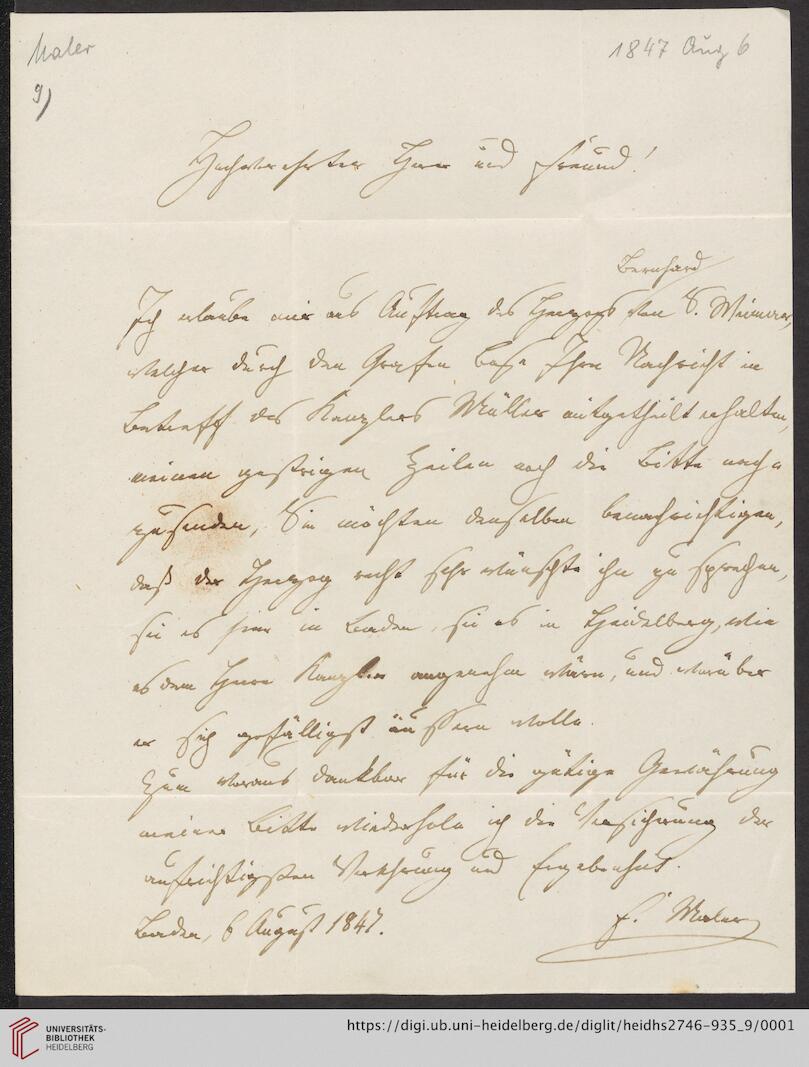 Maler
1847 Aug 6
9)
Hochverehrter Herr und Freund!
Bernhard
Ich erlaube mir aus Auftrag des Herzogs von S. Weimar,
welcher durch den Grafen Ihre Nachricht in
Betreff des Kanzlers Müller mitgetheilt erhalten,
meinen gestrigen Zeilen noch die Bitte nach-
zusenden, Sie möchten denselben benachrichtigen,
daß der Herzog recht sehr wünschte ihn zu sprechen,
sei es hier in Baden, sei es in Heidelberg, wie
es dem Herrn Kanzler angenehm wäre, und worüber
er sich gefälligst äussern wolle.
Zum voraus dankbar für die gütige Gewährung
meiner Bitte wiederhole ich die Versicherung der
aufrichtigsten Verehrung und Ergebenheit.
Baden, 6 August 1847.
F. Maler
UNIVERSITÄTS-
BIBLIOTHEK
HEIDELBERG
https://digi.ub.uni-heidelberg.de/diglit/heidhs2746-935_9/0001